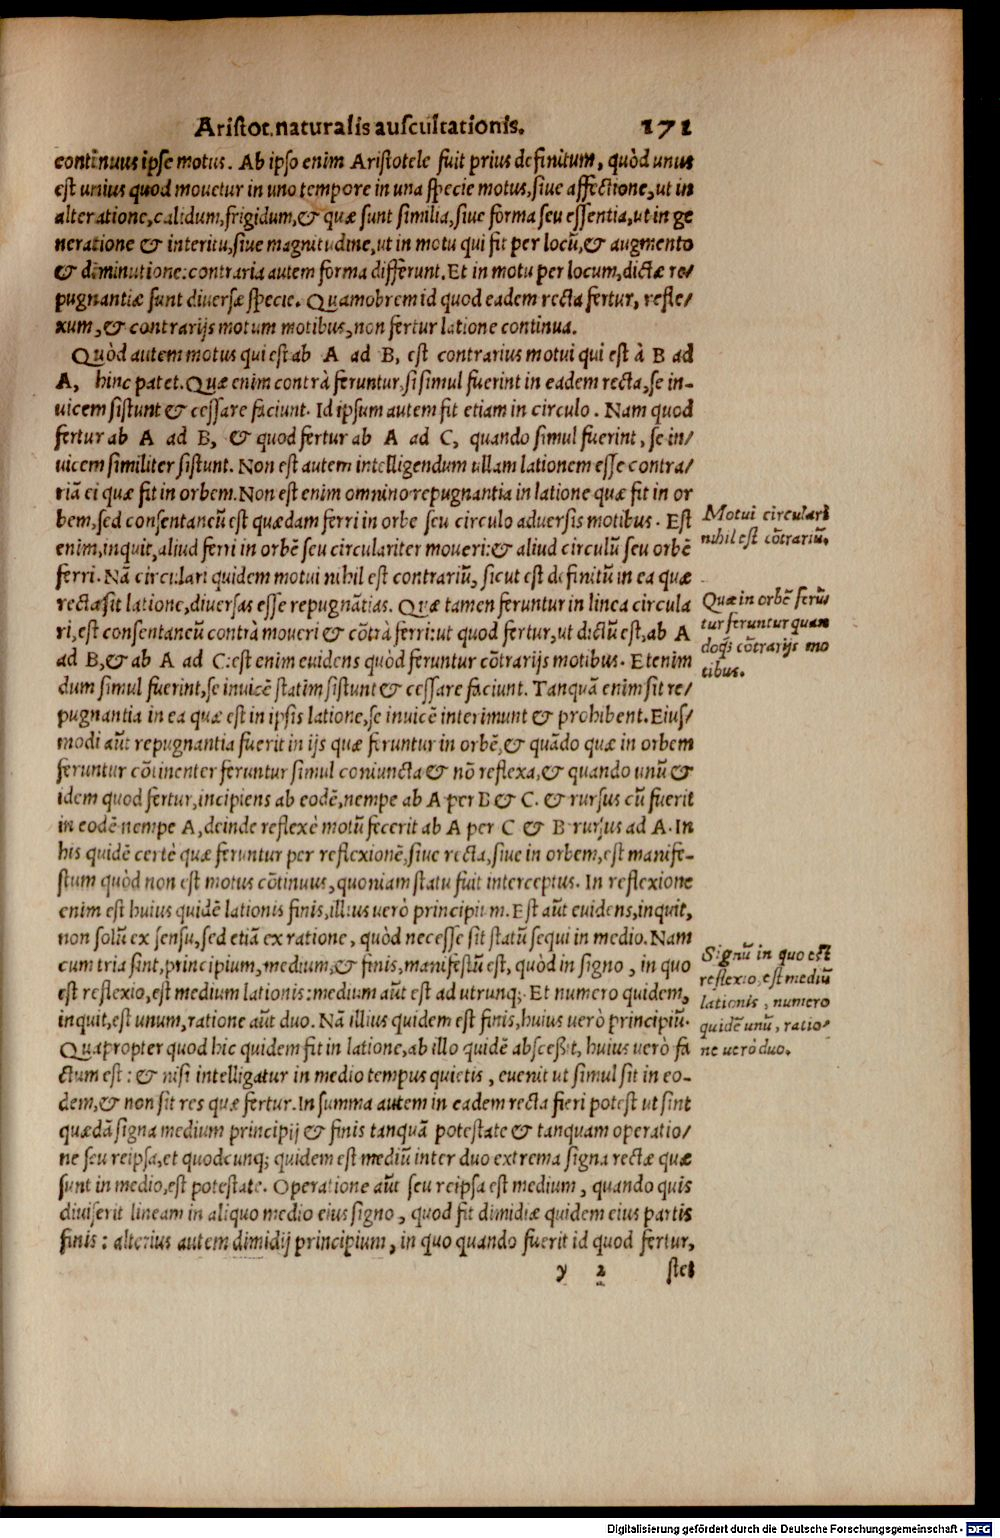 Aristot. naturalis auscultationis. 171
continuus ipse motus. Ab ipso enim Aristotele fuit prius definitum, quòd unus
est unius quod mouetur in uno tempore in una specie motus, siue affectione, ut in
alteratione, calidum, frigidum, & quæ sunt similia, siue forma seu essentia, ut in ge
neratione & interitu, siue magnitudine, ut in motu qui fit per locũ, & augmento
& diminutione: contraria autem forma differunt. Et in motu per locum, dictæ re/
pugnantiæ sunt diuersæ specie. Quamobrem id quod eadem recta fertur, refle/
xum, & contrarijs motum motibus, non fertur latione continua.
Quòd autem motus qui est ab A ad B, est contrarius motui qui est à B ad
A, hinc patet. Quæ enim contrà feruntur, si simul fuerint in eadem recta, se in-
uicem sistunt & cessare faciunt. Id ipsum autem fit etiam in circulo. Nam quod
fertur ab A ad B, & quod fertur ab A ad C, quando simul fuerint, se in/
uicem similiter sistunt. Non est autem intelligendum ullam lationem esse contra/
riã ei quæ fit in orbem. Non est enim omnino repugnantia in latione quæ fit in or
bem, sed consentaneũ est quædam ferri in orbe seu circulo aduersis motibus. Est
enim, inquit, aliud ferri in orbẽ seu circulariter moueri: & aliud circulũ seu orbẽ
ferri. Nã circulari quidem motui nihil est contrariũ, sicut est definitũ in ea quæ
recta sit latione, diuersas esse repugnãtias. Quæ tamen feruntur in linea circula
ri, est consentaneũ contrà moueri & cõtrà ferri: ut quod fertur, ut dictũ est, ab A
ad B, & ab A ad C: est enim euidens quòd feruntur cõtrarijs motibus. Etenim
dum simul fuerint, se inuicẽ statim sistunt & cessare faciunt. Tanquã enim sit re/
pugnantia in ea quæ est in ipsis latione, se inuicẽ interimunt & prohibent. Eius/
modi aũt repugnantia fuerit in ijs quæ feruntur in orbẽ, & quãdo quæ in orbem
feruntur cõtinenter feruntur simul coniuncta & nõ reflexa, & quando unũ &
idem quod fertur, incipiens ab eodẽ, nempe ab A per B & C. & rursus cũ fuerit
in eodẽ nempe A, deinde reflexè motũ fecerit ab A per C & B rursus ad A. In
his quidẽ certè quæ feruntur per reflexionẽ, siue recta, siue in orbem, est manife-
stum quòd non est motus cõtinuus, quoniam statu fuit interceptus. In reflexione
enim est huius quidẽ lationis finis, illius uerò principium. Est aũt euidens, inquit,
non solũ ex sensu, sed etiã ex ratione, quòd necesse sit statũ sequi in medio. Nam
cum tria sint, principium, medium, & finis, manifestũ est, quòd in signo, in quo
est reflexio, est medium lationis: medium aũt est ad utrunq;. Et numero quidem,
inquit, est unum, ratione aũt duo. Nã illius quidem est finis, huius uerò principiũ.
Quapropter quod hic quidem fit in latione, ab illo quidẽ abscessit, huius uerò fa
ctum est: & nisi intelligatur in medio tempus quietis, euenit ut simul sit in eo-
dem, & non sit res quæ fertur. In summa autem in eadem recta fieri potest ut sint
quædã signa medium principij & finis tanquã potestate & tanquam operatio/
ne seu reipsa, et quodcunq; quidem est mediũ inter duo extrema signa rectæ quæ
sunt in medio, est potestate. Operatione aũt seu reipsa est medium, quando quis
diuiserit lineam in aliquo medio eius signo, quod fit dimidiæ quidem eius partis
finis: alterius autem dimidij principium, in quo quando fuerit id quod fertur,
y 2 stet
Motui circulari
nihil est cõtrariũ.
Quæ in orbẽ ferũ
tur feruntur quan
doq; cõtrarijs mo
tibus.
Signũ in quo est
reflexio, est mediũ
lationis, numero
quidẽ unũ, ratio-
ne uerò duo.
Digitalisierung gefördert durch die Deutsche Forschungsgemeinschaft - DFG